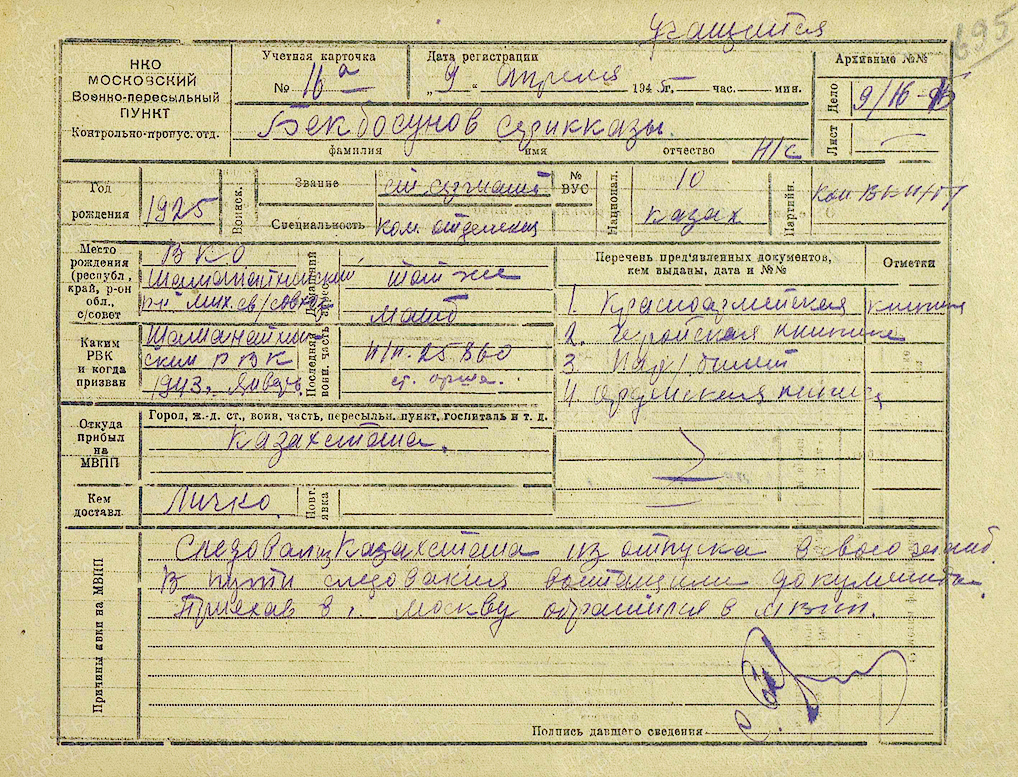 695
НКО
МОСКОВСКИЙ
Военно-пересыльный
ПУНКТ
Контрольно-пропус. отд.
Учетная карточка
№ 16 а
Дата регистрации
„ 9 “ Апреля 194 5 г. час. мин.
Архивные №№
Дело 9/16
Лист
Бекбосунов Серикказы.
фамилия имя отчество Н/с
Год рождения 1925
Воинск.
Звание ст. сержант
Специальность ком. отделения
№ ВУС
Национал. 10
казах
Партийн.
Место рождения (республ., край, р-он обл., с/совет
ВКО
Домашний адрес
там же
Каким РВК и когда призван
ским РВК
1943. Январь
Последняя воин. часть
п/п. 25860
ст. орша.
Перечень пред'явленных документов, кем выданы, дата и №№
Отметки
1. Красноармейская книжка
2.
3.
4. Орденская книжка
Откуда прибыл на МВПП
Город, ж.-д. ст., воин. часть, пересыльн. пункт, госпиталь и т. д.
Казахстана.
Кем доставл.
Лично.
Повт. явка
Причины явки на МВПП
Следовал из Казахстана из отпуска в свою
В пути следования документы
Приехав в г. Москву обратился в МВПП.
Подпись давшего сведения